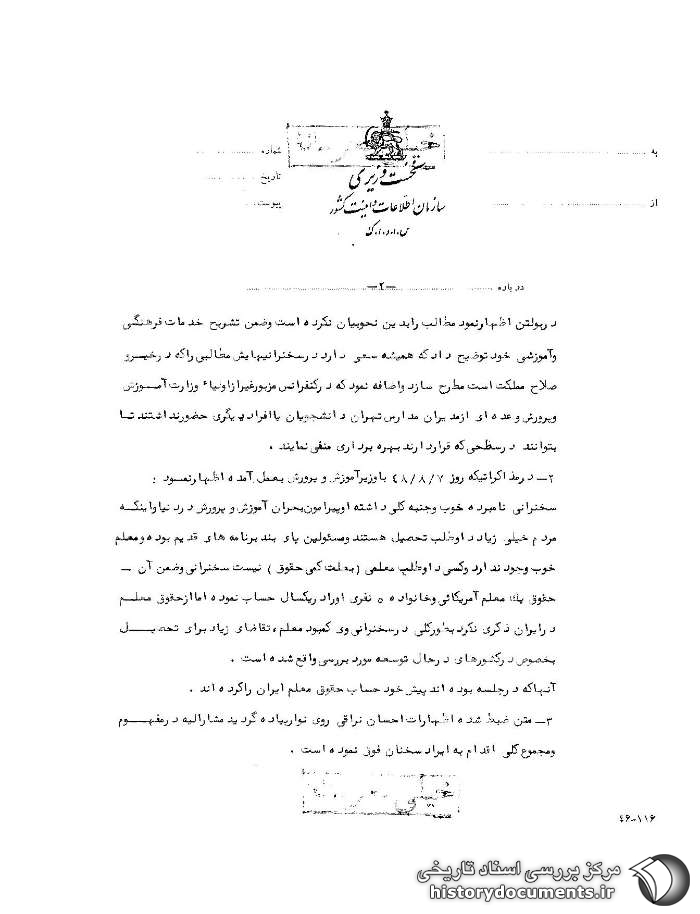 خیلی محرمانه
به
شماره
نخست وزیری
تاریخ
از
سازمان اطلاعات و امنیت کشور
پیوست
س.ا.و.ا.ک
درباره -۲-
در بولتن اظهار نمود مطالب را بدین نحو بیان نکرده است وضمن تشریح خدمات فرهنگی
وآموزشی خود توضیح داد که همیشه سعی دارد در سخنرانیهایش مطالبی را که در خیر و
صلاح مملکت است مطرح سازد واضافه نمود که در کنفرانس مزبور غیر از اولیاء وزارت آموزش
وپرورش وعده ای از مدیران مدارس تهران دانشجویان یا افراد دیگری حضور نداشتند تا
بتوانند در سطحی که قرار دارند بهره برداری منفی نمایند .
۲- در مذاکراتیکه روز ۴۸/۸/۷ با وزیر آموزش و پرورش بعمل آمده اظهار نمود :
سخنرانی نامبرده خوب وجنبه کلی داشته او پیرامون بحران آموزش و پرورش در دنیا و اینکه
مردم خیلی زیاد داوطلب تحصیل هستند ومسئولین پای بند برنامه های قدیم بوده ومعلم
خوب وجود ندارد وکسی داوطلب معلمی (بعلت کمی حقوق) نیست سخنرانی وضمن آن -
حقوق یک معلم آمریکائی وخانواده ۵ نفری او را در یکسال حساب نموده اما از حقوق معلم
در ایران ذکری نکرد بطور کلی در سخنرانی وی کمبود معلم، تقاضای زیاد برای تحصیل
بخصوص در کشورهای در حال توسعه مورد بررسی واقع شده است .
آنها که در جلسه بوده اند پیش خود حساب حقوق معلم ایران را کرده اند .
۳- متن ضبط شده اظهارات احسان نراقی روی نوار پیاده گردید مشارالیه در مفهوم
ومجموع کلی اقدام به ایراد سخنان فوق نموده است .
خیلی محرمانه
۴۶-۱۱۶
مرکز بررسی اسناد تاریخی
historydocuments.ir